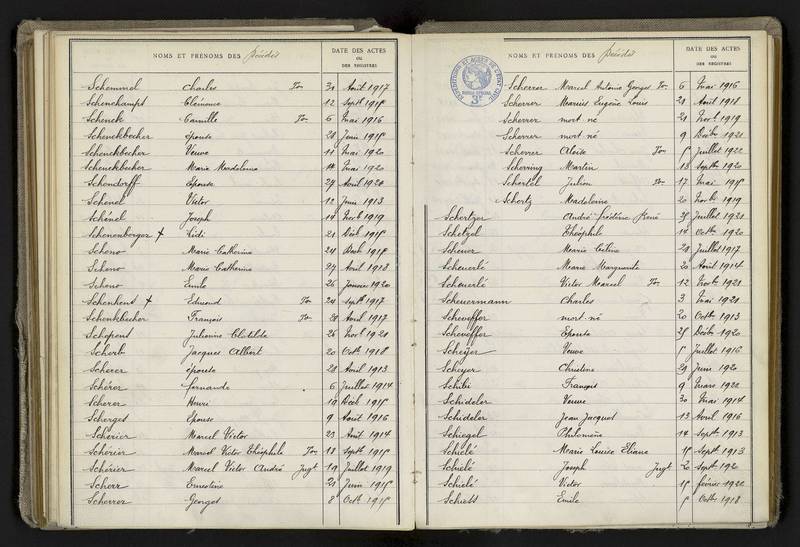 NOMS ET PRÉNOMS DES Décédés
DATE DES ACTES
OU
DES REGISTRES
Schemmel Charles Ton 30 Août 1917
Schenchampt Clémence 12 Septb
Schenck Camille Ton 6 Mai 1916
Schenckbecher épouse 28 Juin
Schenckbecher Veuve 11 Mai 1920
Schenckbecher Marie Mai 1920
Schendorff Epouse 27 Avril 1920
Schenel Victor 12 Juin 1913
Schénel Joseph 14 Novb 1919
Schenenberger + Lidi 21 Décb
Scheno Marie Catherine 24
Scheno Marie Catherine 27 Avril 1918
Scheno Emile 26 Janvier 1920
Schenkent + Edmond Ton 24 Septb 1917
Schenkbecher François Ton Avril 1917
Schepens Julienne Clotilde 26 Novb
Scherb Jacques Albert 20 Octb 1918
Scherer épouse 28 Avril 1913
Schérer fernande 6 Juillet 1914
Scherer Henri 19 Décb
Scherger Epouse 9 Août 1916
Schérier Marcel Victor 23 Août 1914
Schérier Marcel Victor Théophile Ton 18 Septb
Schérier Marcel Victor André Jugt 19 Juillet 1919
Scherr Ernestine 21 Juin
Scherrer Georges 8 Octb
NOMS ET PRÉNOMS DES Décédés
DATE DES ACTES
OU
DES REGISTRES
Scherrer Marcel Antoine Georges Ton 6 Mai 1916
Scherrer Marius Eugène Louis 21 Août 1918
Scherrer mort né 21 Novb 1919
Scherrer mort né 9 Décb
Scherrer Aloïse Ton Juillet
Scherring Martin 18 Septb 1920
Schertel Julien Ton 17 Mai
Schertz Madeleine 20 Novb 1919
Schertzer André frédéric René 25 Juillet
Schetzel Théophile 14 Octb 1920
Scheuer Marie Céline 28 Juillet 1917
Scheuerlé Marie Marguerite 20 Août 1914
Scheuerlé Victor Marcel Ton 12 Novb
Scheuermann Charles 3 Mai
Scheveffer mort né 20 Octb 1913
Scheveffer Epouse 25 Décb 1920
Scheyer Veuve Juillet 1916
Scheyer Christine 29 Juin 1920
Schibi François 9 Mars
Schideler Veuve 30 Mai 1914
Schideler Jean Jacques 13 Avril 1916
Schiegel Philomène 14 Septb 1913
Schielé Marie Louise Eliane Septb 1913
Schielé Joseph Jugt 2 Septb
Schielé Victor février
Schiess Emile Octb 1918